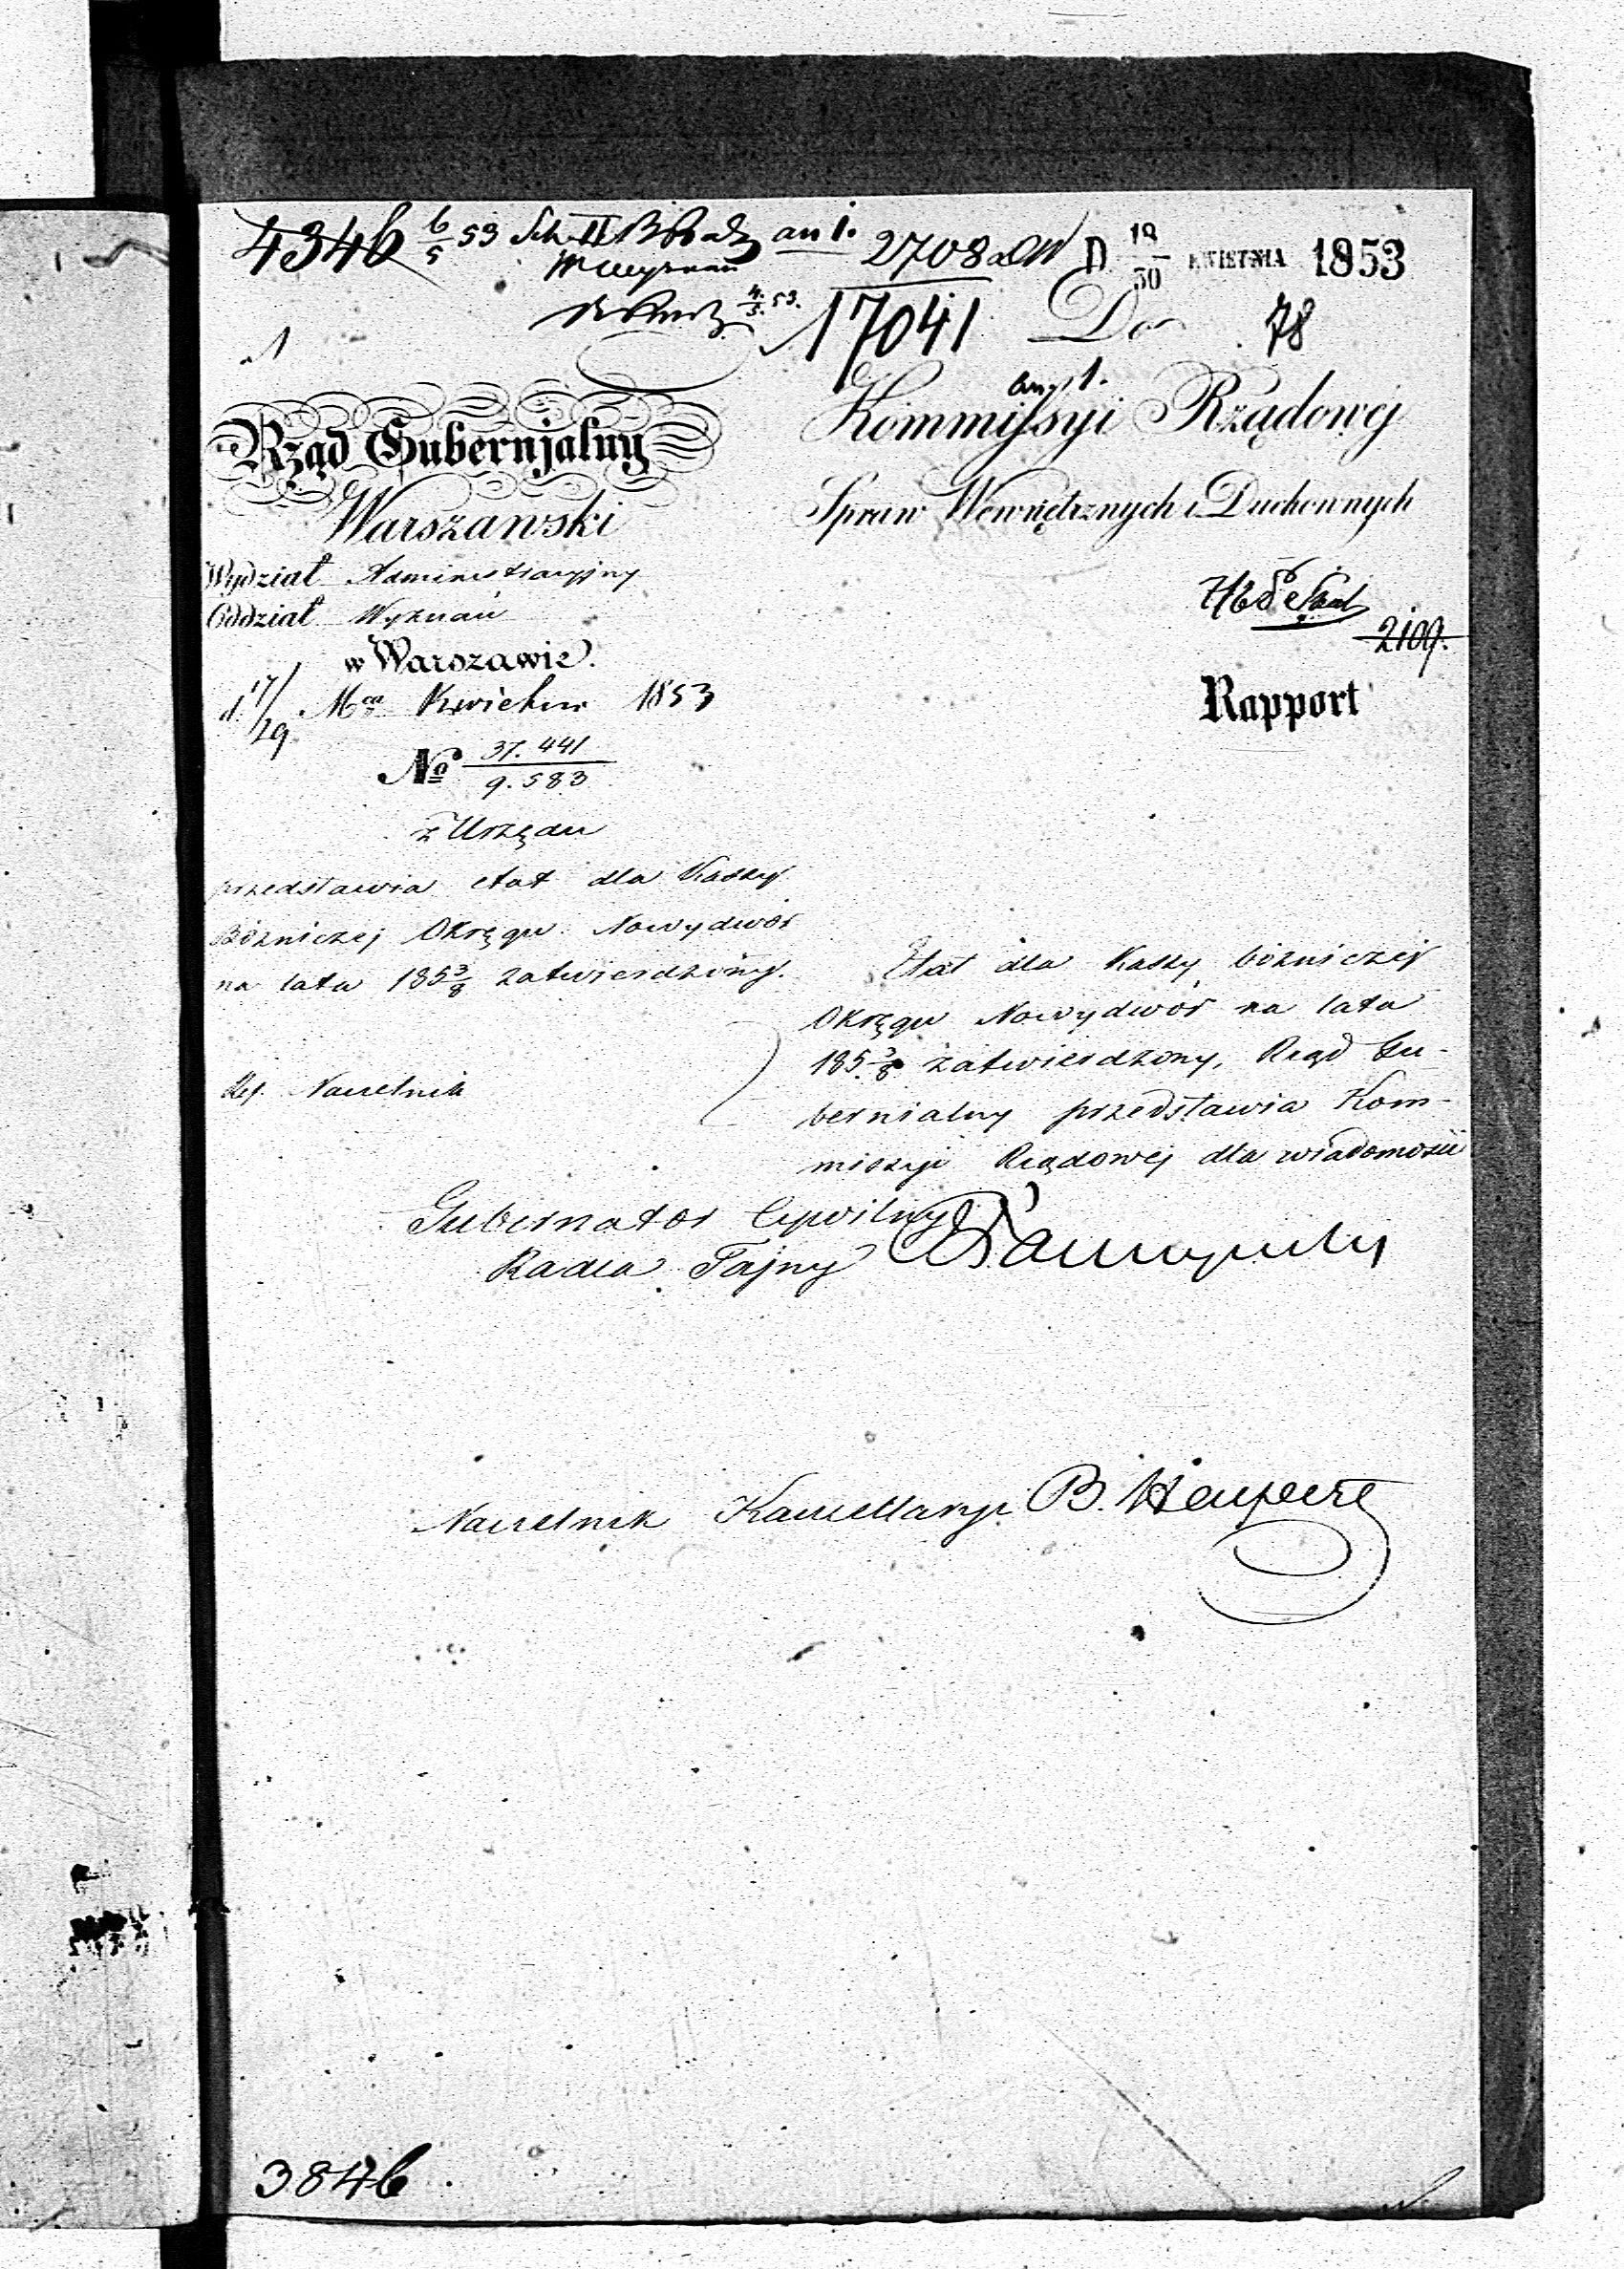 4346 6/5 53 an 1. 2708 D 18/30 KWIETNIA 1853
4/5 53. 17041 Do 78
1
Rząd Gubernjalny
Warszawski
Wydział Administracyjny
Oddział Wyznań
w Warszawie.
d. 17/29 Mca Kwietnia 1853
No 37.441/9.583
z Urzędu
przedstawia etat dla Kassy
Bóżniczej Okręgu Nowydwór
na lata 1853/8 zatwierdzony.
Ref. Naczelnik
Kommissyi Rządowej
Spraw Wewnętrznych i Duchownych
2109.
Rapport
Etat dla Kassy bóżniczej
Okręgu Nowydwór na lata
1853/8 zatwierdzony, Rząd Gu-
bernialny przedstawia Kom-
missyi Rządowej dla wiadomości
Gubernator Cywilny
Radca Tajny
Naczelnik Kancellaryi B.
3846